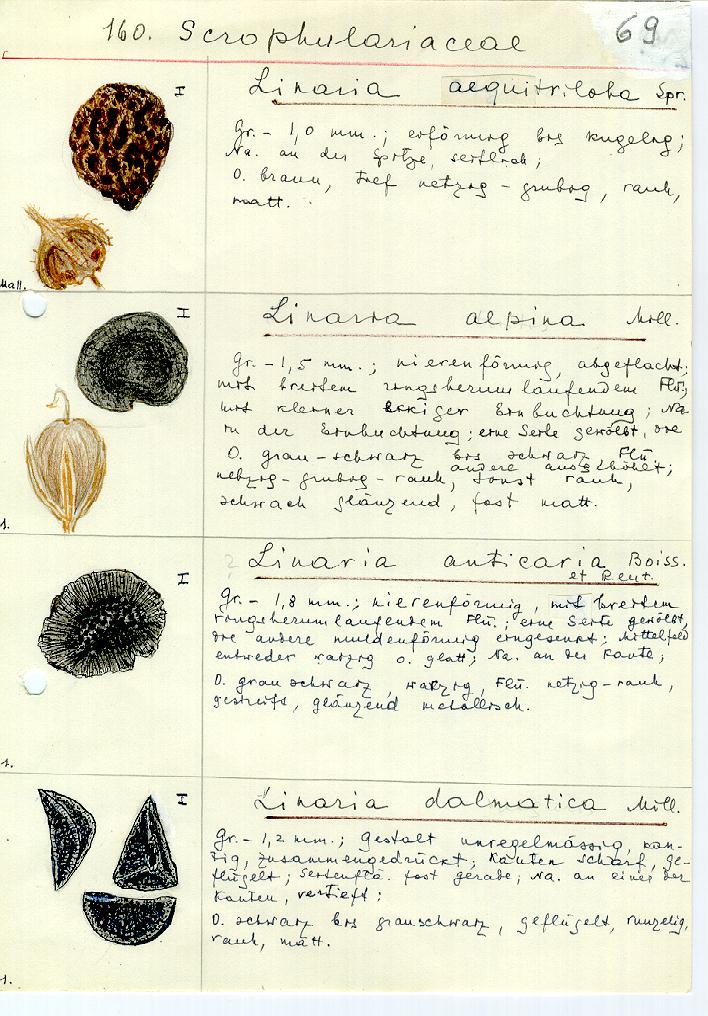 160. Scrophulariaceae 69
Linaria aequitriloba Spr.
Gr. - 1,0 mm.; eiförmig bis kugelig;
Na. an der Spitze, seitlich;
O. braun, tief netzig - grubig, rauh,
matt.
Mall.
Linaria alpina Mill.
Gr. - 1,5 mm.; nierenförmig, abgeflacht;
mit breitem ringsherum laufendem Flü;
mit kleiner eckiger Einbuchtung; Na
in der Einbuchtung; eine Seite gewölbt, die
andere ausgehöhlt;
O. grau - schwarz bis schwarz Flü
netzig - grubig - rauh, sonst rauh,
schwach glänzend, fast matt.
1.
? Linaria anticaria Boiss.
et Reut.
Gr. - 1,8 mm.; nierenförmig, mit breitem
ringsherum laufendem Flü.; eine Seite gewölbt,
die andere muldenförmig eingesenkt; Mittelfeld
entweder warzig o. glatt; Na. an der Kante;
O. grau schwarz, warzig, Flü. netzig - rauh,
gestreift, glänzend metallisch.
1.
Linaria dalmatica Mill.
Gr. - 1,2 mm.; Gestalt unregelmässig, kan-
tig, zusammengedrückt; Kanten scharf, ge-
flügelt; Seitenflä. fast gerade; Na. an einer der
Kanten, vertieft;
O. schwarz bis grauschwarz, geflügelt, runzelig,
rauh, matt.
1.